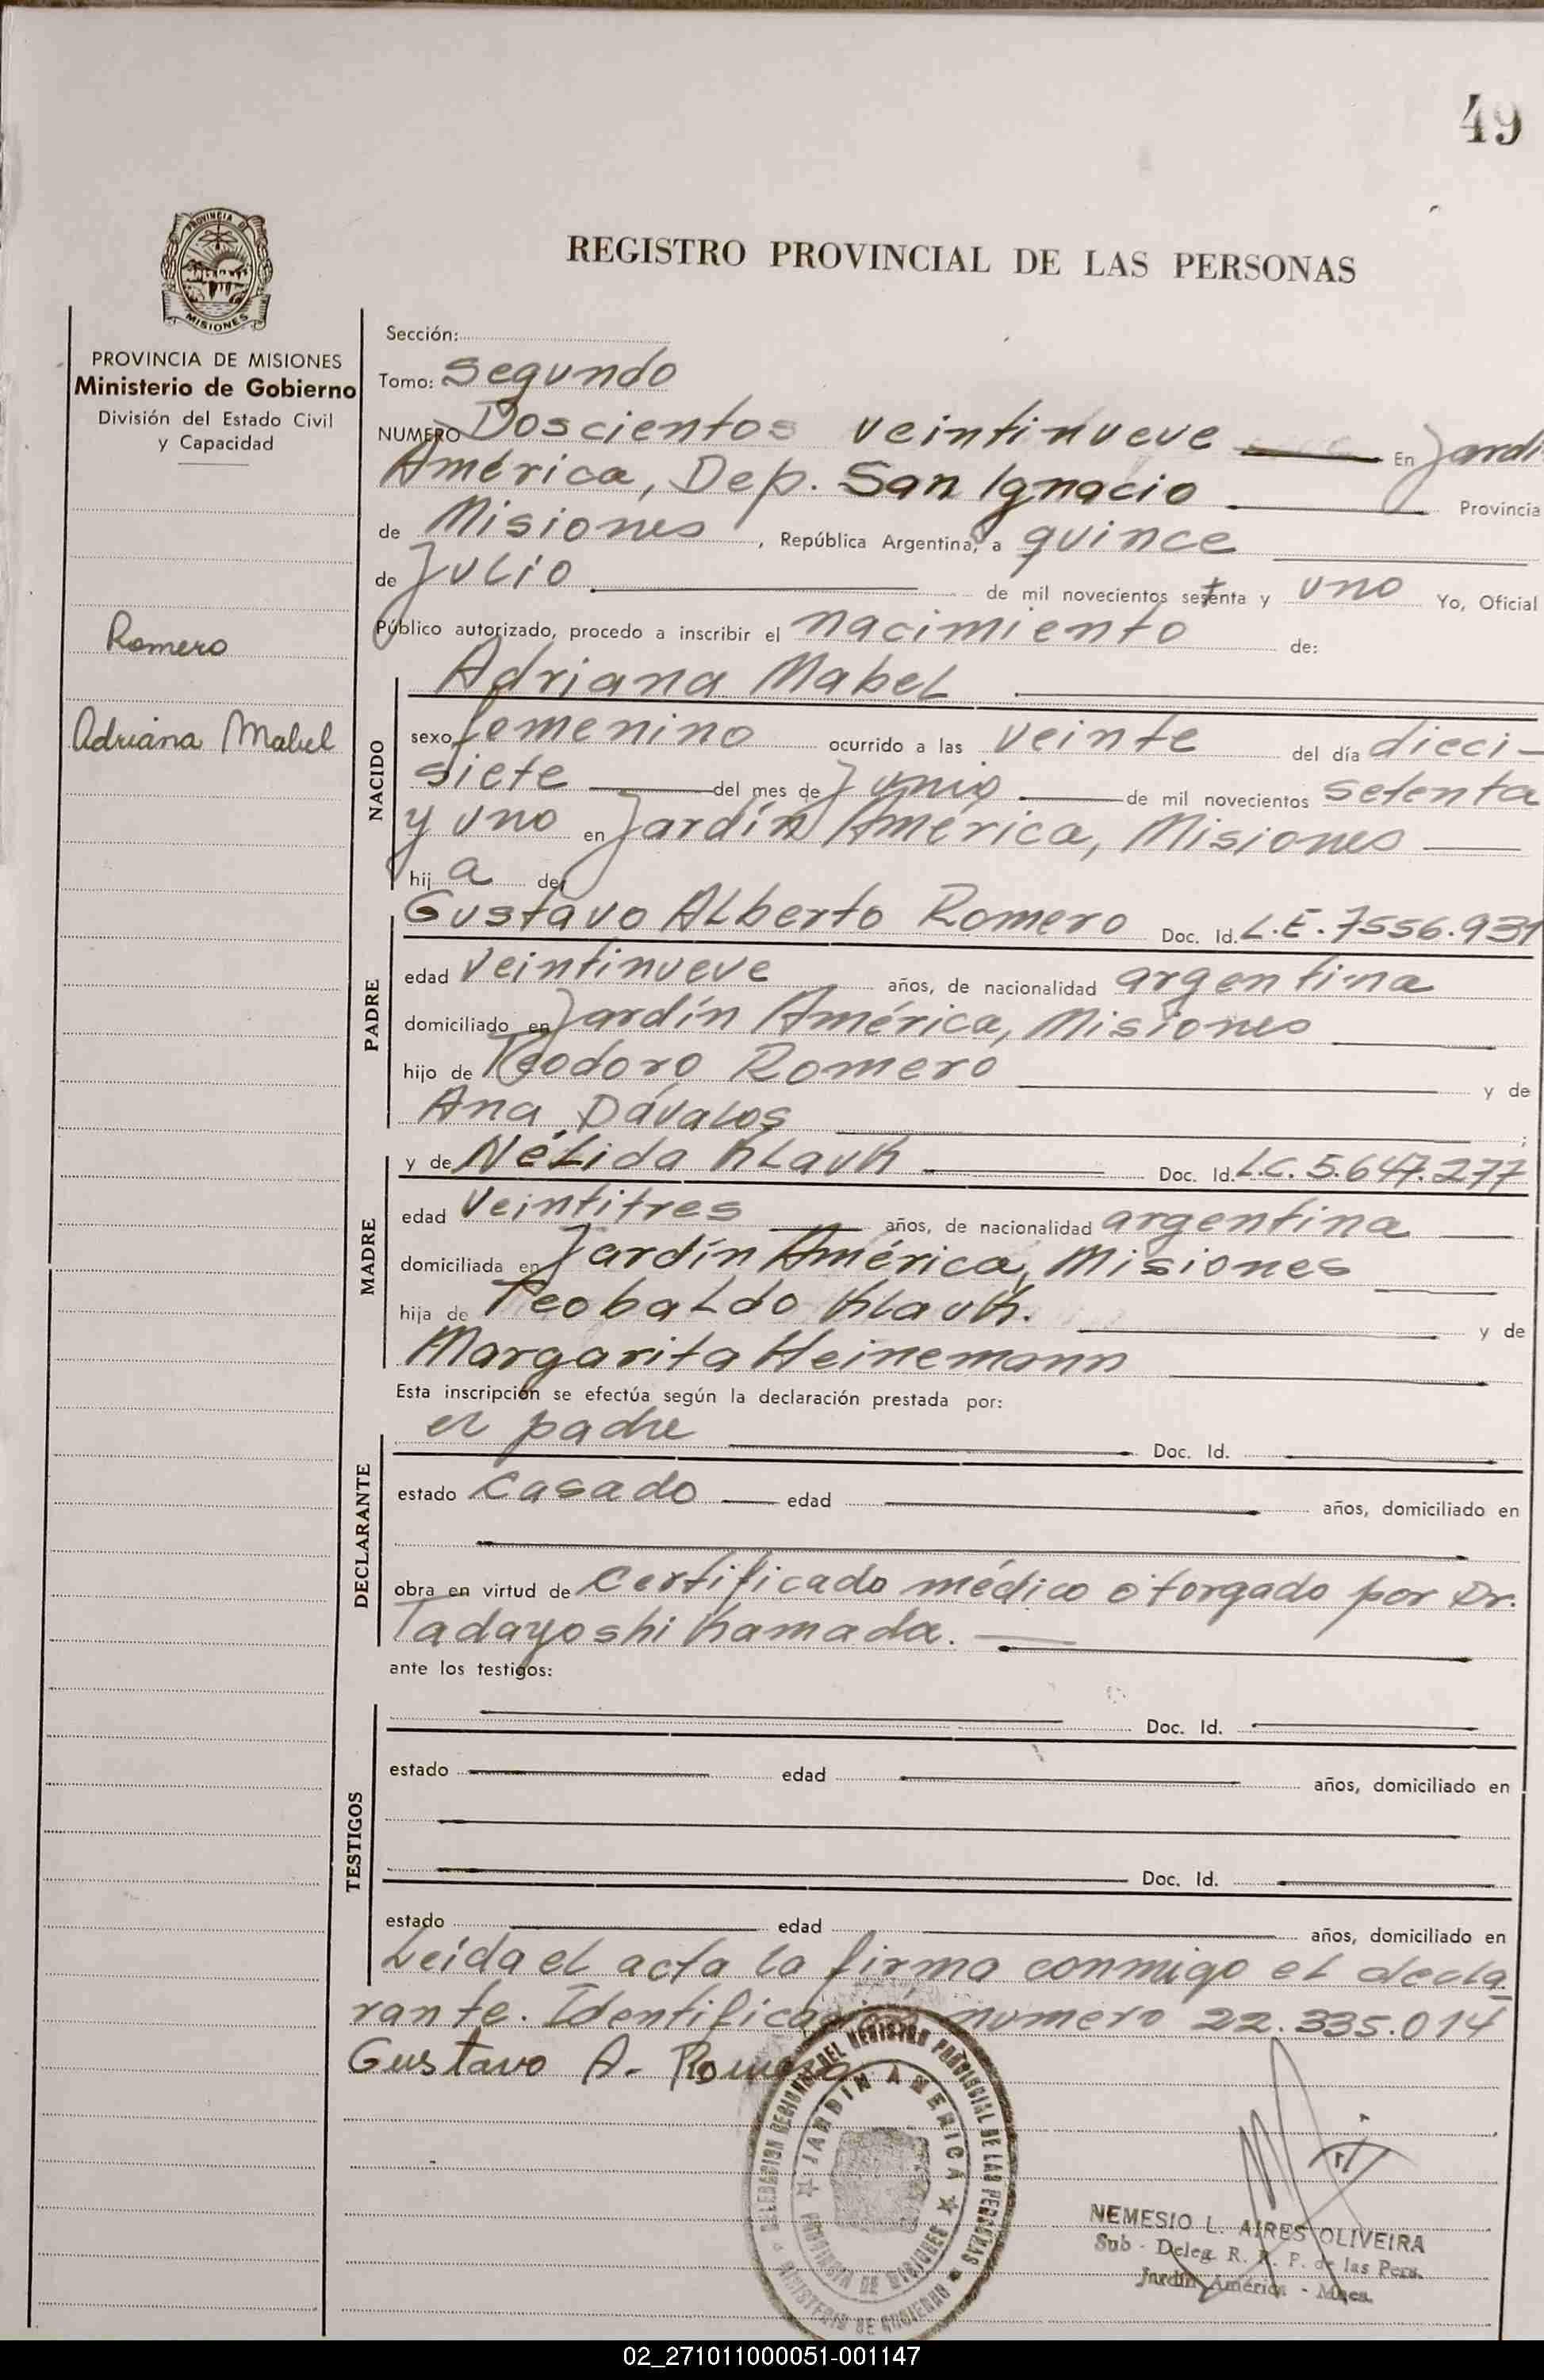 49
PROVINCIA DE MISIONES
REGISTRO PROVINCIAL DE LAS PERSONAS
PROVINCIA DE MISIONES
Ministerio de Gobierno
División del Estado Civil
y Capacidad
Romero
Adriana Mabel
Sección:
Tomo: Segundo
NUMERO Doscientos veintinueve En Jardí
América, Dep. San Ignacio Provincia
de Misiones, República Argentina, a quince
de Julio de mil novecientos setenta y uno Yo, Oficial
Público autorizado, procedo a inscribir el nacimiento de:
Adriana Mabel
NACIDO
sexo femenino ocurrido a las veinte del día dieci-
siete del mes de Junio de mil novecientos setenta
y uno en Jardín América, Misiones
hij a de
Gustavo Alberto Romero Doc. Id. L.E. 7556.931
PADRE
edad veintinueve años, de nacionalidad argentina
domiciliado en Jardín América, Misiones
hijo de Teodoro Romero y de
Ana Dávalos ;
y de Nélida Klauk Doc. Id. L.C. 5.647.277
MADRE
edad veintitres años, de nacionalidad argentina
domiciliada en Jardín América, Misiones
hija de Teobaldo Klauk. y de
Margarita Heinemann
Esta inscripción se efectúa según la declaración prestada por:
el padre Doc. Id.
DECLARANTE
estado casado edad años, domiciliado en
obra en virtud de certificado médico otorgado por Dr.
Tadayoshi Kamada.
ante los testigos:
Doc. Id.
TESTIGOS
estado edad años, domiciliado en
Doc. Id.
estado edad años, domiciliado en
Leída el acta la firma conmigo el decla
rante. Identificación numero 22.335.014
Gustavo A. Romero
DELEGACION REGIONAL DEL REGISTRO PROVINCIAL DE LAS PERSONAS
JARDIN AMERICA
PROVINCIA DE MISIONES
MINISTERIO DE GOBIERNO
NEMESIO L. AIRES OLIVEIRA
Sub - Deleg. R. R. P. de las Pers.
Jardín América - Mnes.
02_271011000051-001147